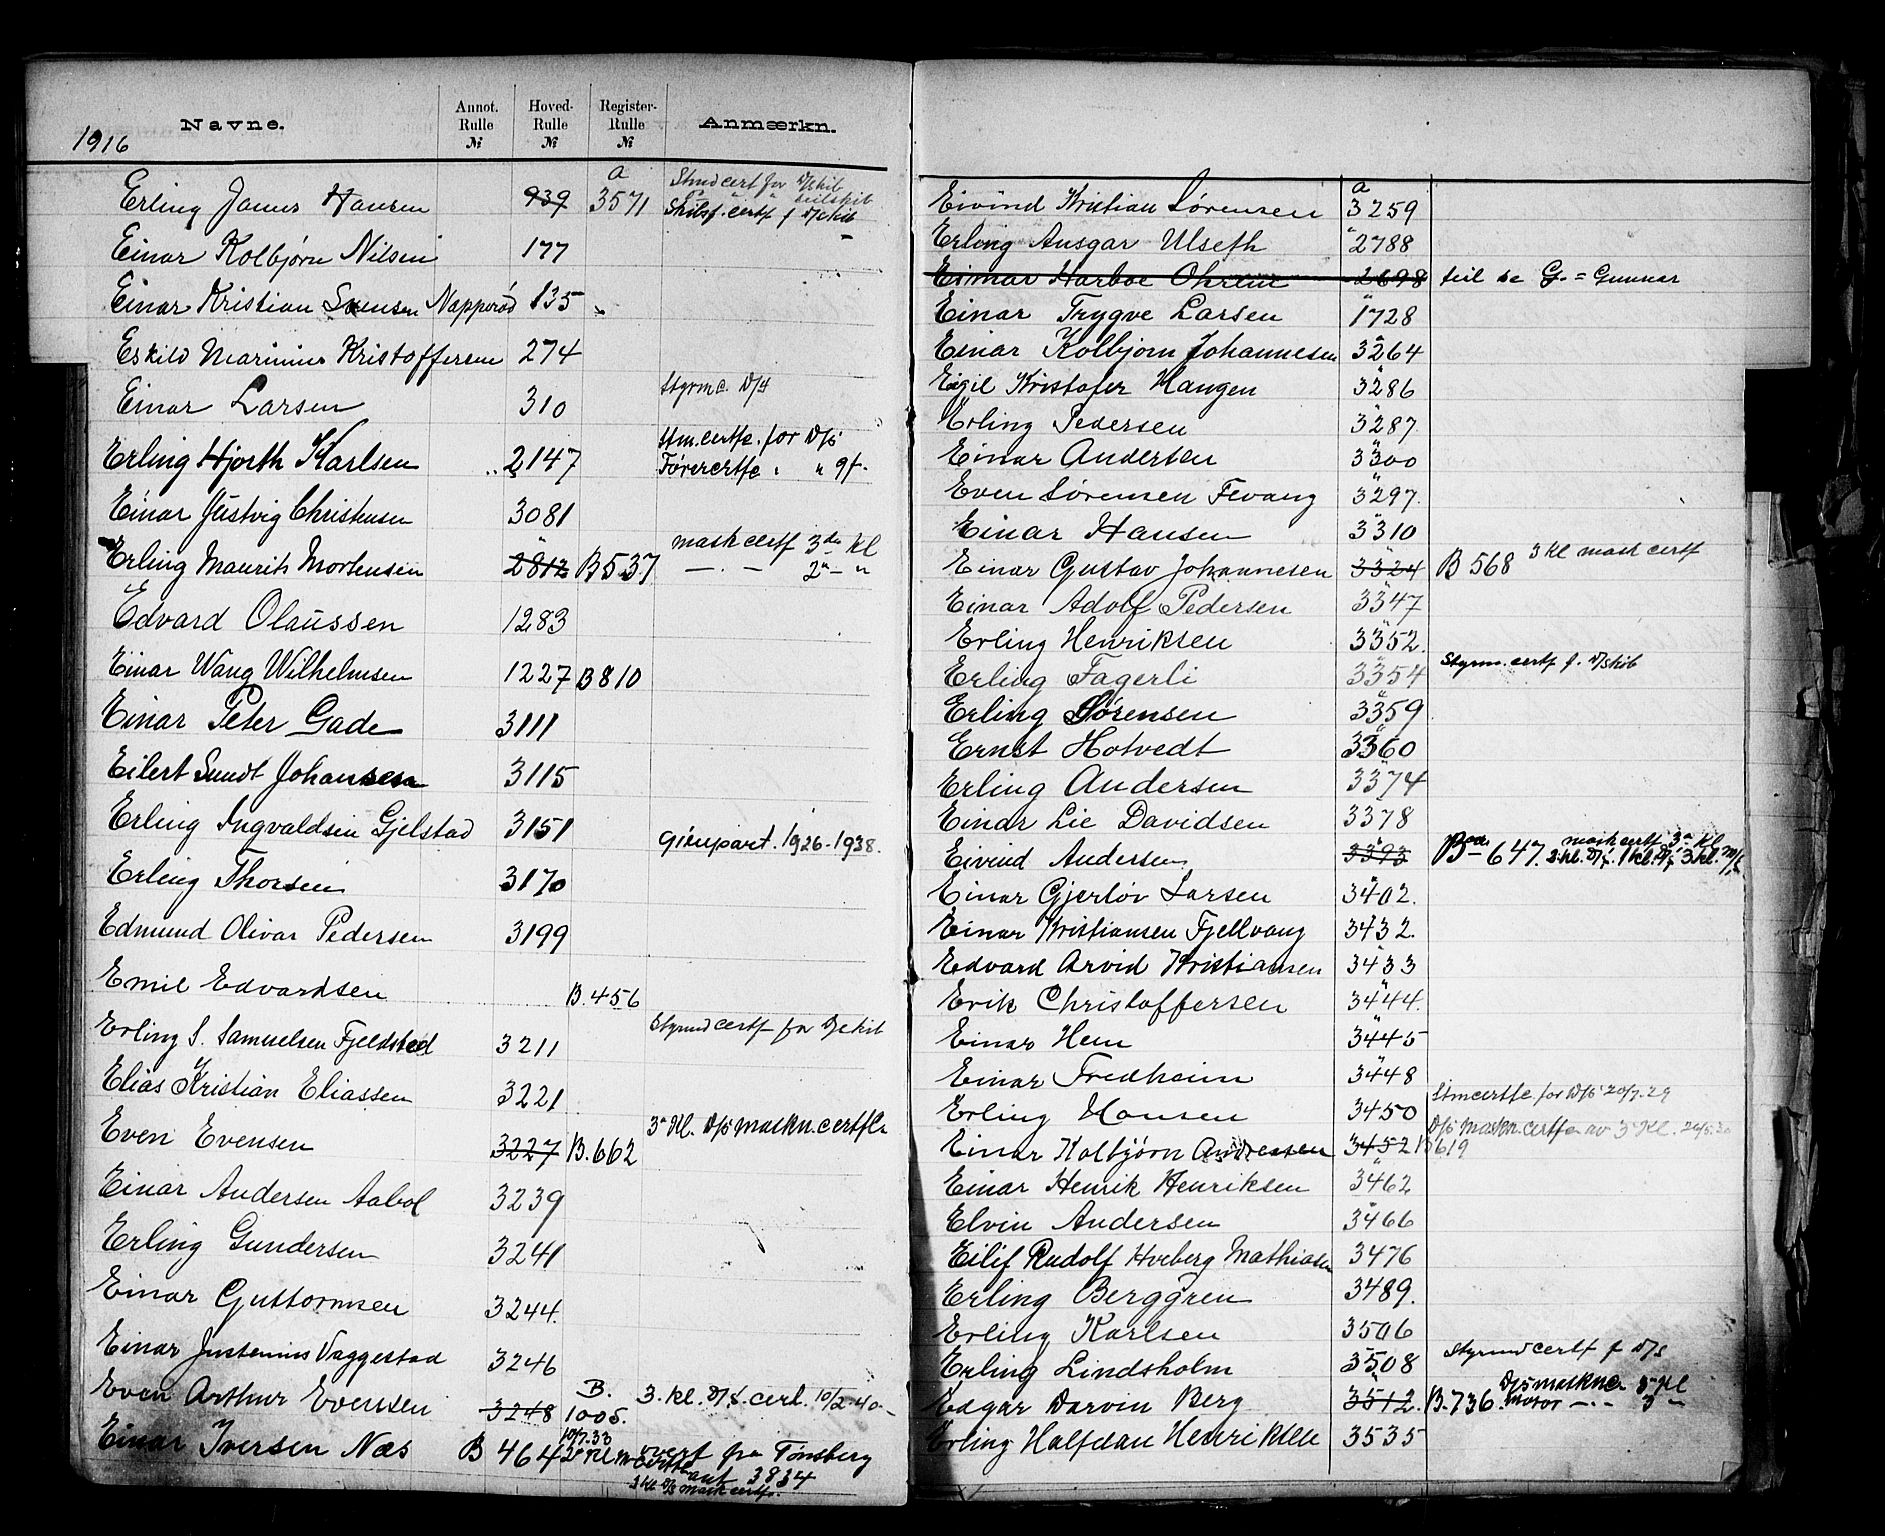 1916
Navne. Annot. Rulle № Hoved- Rulle № Register- Rulle № Anmærkn.
Erling James Hansen 939 a 3571 Stmd cert for D/skib
Skibsf. certf f D/skib
Einar Kolbjørn Nilsen 177
Einar Kristian Svensen Napperød 135
Eskild Marinius Kristoffersen 274
Einar Larsen 310 Styrmc. D/s
Erling Hjorth Karlsen 2147 Stm.certfc. for D/s
Førercertfc " " gf.
Einar Christensen 3081
Erling Maurits Mortensen 2812 B537 mask certf 3de kl
— . — 2n — "
Edvard Olaussen 1283
Einar Wang Wilhelmsen 1227 B810
Einar Peter Gade 3111
Eilert Sundt Johansen 3115
Erling Ingvaldsen Gjelstad 3151
gienpart. 1926-1938.
Erling Thorsen 3170
Edmund Olivar Pedersen 3199
Emil Edvardsen B.456
Erling S. Samuelsen Fjeldstad 3211 Styrmd certf for D/skib
Elias Kristian Eliassen 3221
Even Evensen 3227 B.662 3 Kl. D/s maskn.certfc
Einar Andersen Aabol 3239
Erling Gundersen 3241
Einar Guttormsen 3244.
Einar Justenius Vaggestad 3246
Even Arthur Evensen 3248 B. 1005. 3. kl. D/s. cert. 10/2-40
Einar Iversen Næs B 464 10/7.33 2 Kl m certfc overf fra Tønsberg
ant 3834
3 kl D/s mask certfc.
Eivind Kristian Sørensen a 3259
Erling Ansgar Ulseth " 2788
Eimar Harboe Ohrem 2698 feil se G. = Gunnar
Einar Trygve Larsen " 1728
Einar Kolbjørn Johannesen " 3264
Eigil Kristofer Haugen " 3286
Erling Pedersen " 3287
Einar Andersen " 3300
Even Sørensen Fevang " 3297.
Einar Hansen " 3310
Einar Gustav Johannesen " 3324 B 568 3 kl mask certf
Einar Adolf Pedersen " 3347
Erling Henriksen " 3352.
Erling Fagerli " 3354 Styrm.certf f. D/skib
Erling Sørensen " 3359
Ernst Hotvedt " 3360
Erling Andersen " 3374
Einar Lie Davidsen " 3378
Eivind Andersen 3393 B 647. mask certf 3 kl
2 kl. D/s. 1 kl. D/s 3 kl. m/s
Einar Gjerløv Larsen " 3402.
Einar Kristiansen Fjellvang " 3432.
Edvard Arvid Kristiansen " 3433
Erik Christoffersen " 3444.
Einar Hem " 3445
Einar Fredheim " 3448
Erling Hansen 3450 Stmcertfc for D/s 20/7.29
Einar Kolbjørn Andressen 3452 B619 D/s Maskn.certfc av 3 Kl.
Einar Henrik Henriksen " 3462
Elvin Andersen " 3466
Eilif Rudolf Hveberg Mathiasen 3476
Erling Berggren 3489.
Erling Karlsen 3506
Erling Lindsholm 3508 Styrmd certf f D/s
Edgar Darvin Berg " 3512. B.736. D/s masknc 3 kl
Motor — . . 3 —
Erling Halfdan Henriksen 3535